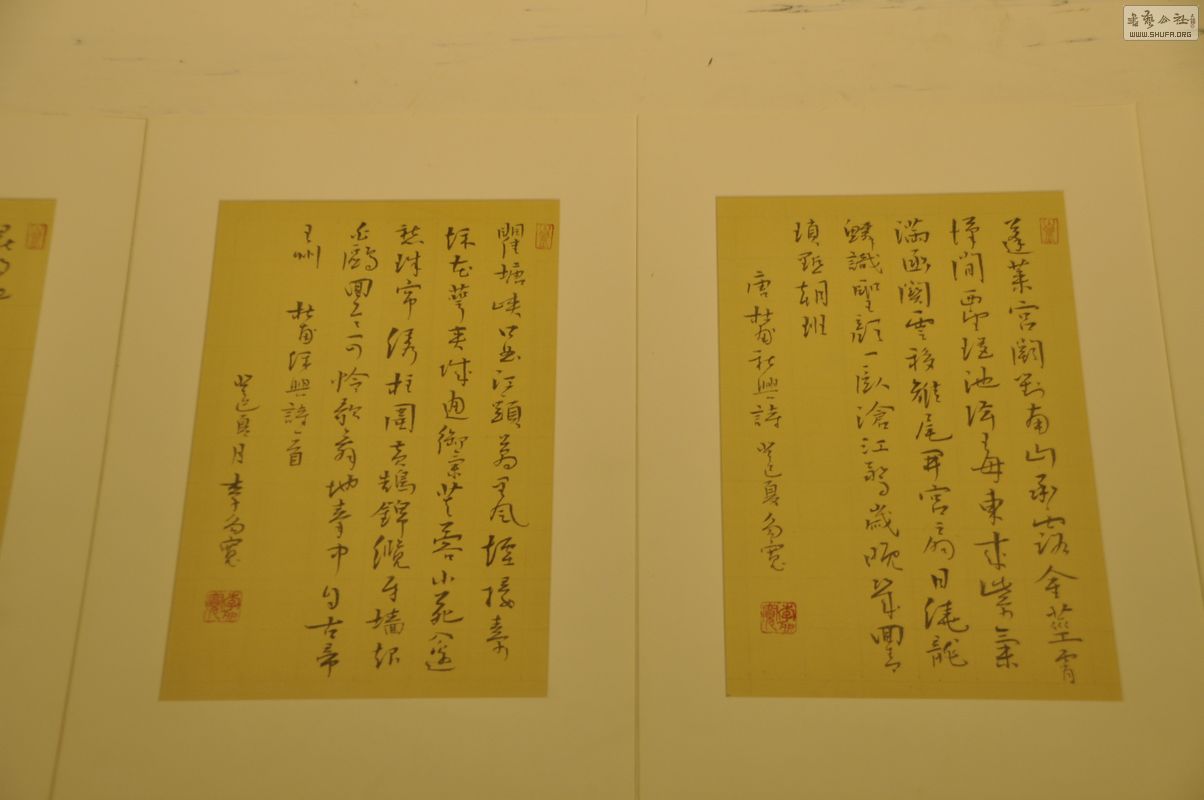 蓬萊宮闕對南山承露金莖霄
漢間西望瑤池降王母東来紫氣
滿函關雲移雉尾開宮扇日繞龍
鱗識聖顏一臥滄江驚歲晚幾回青
瑣點朝班
唐杜甫秋興詩 癸巳夏 寬
瞿塘峽口曲江頭萬里風煙接素
秋花萼夾城通御氣芙蓉小苑入邊
愁珠帘綉柱圍黃鵠錦纜牙墻起
白鷗回首可憐歌舞地秦中自古帝
王州
杜甫秋興詩一首
癸巳夏月李 寬
書藝公社
WWW.SHUFA.ORG